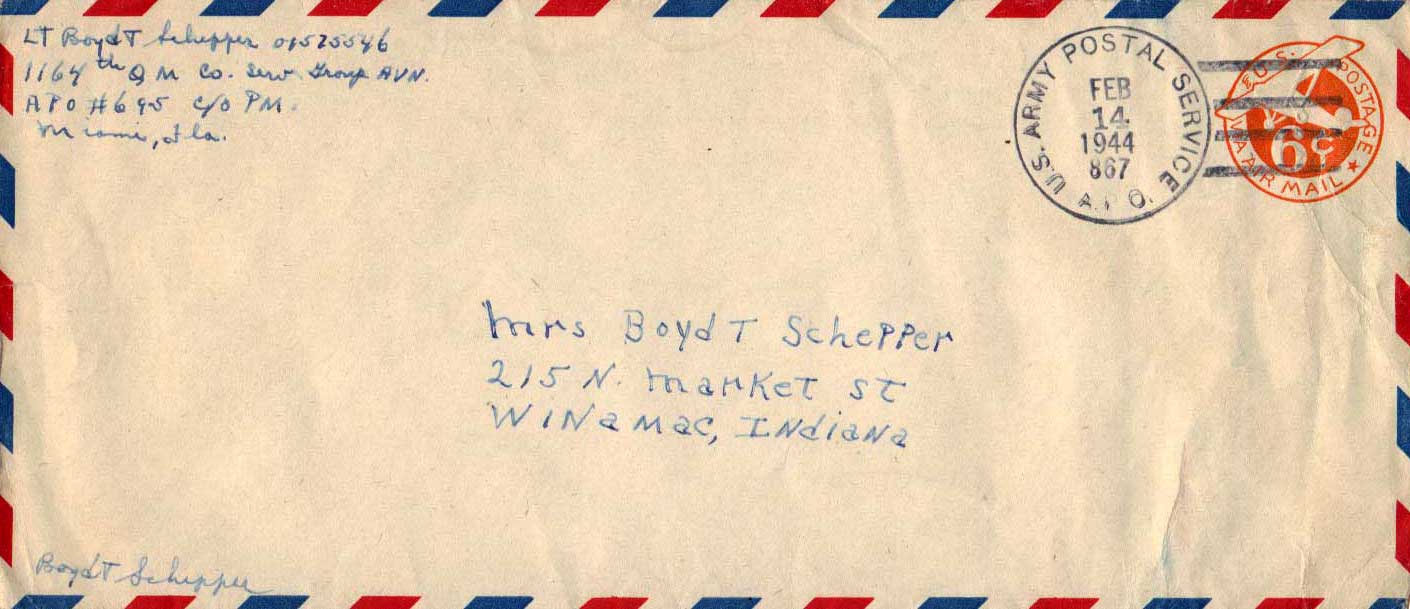 LT Boyd T Schepper 01575546
1164th Q M Co. Serv. Group AVN.
APO #695 c/o PM.
Miami, Fla.
U.S. ARMY POSTAL SERVICE
FEB
14
1944
867
A.P.O.
U.S. POSTAGE
6¢
VIA AIR MAIL
Mrs Boyd T Schepper
215 N. Market St
Winamac, Indiana
Boyd T Schepper